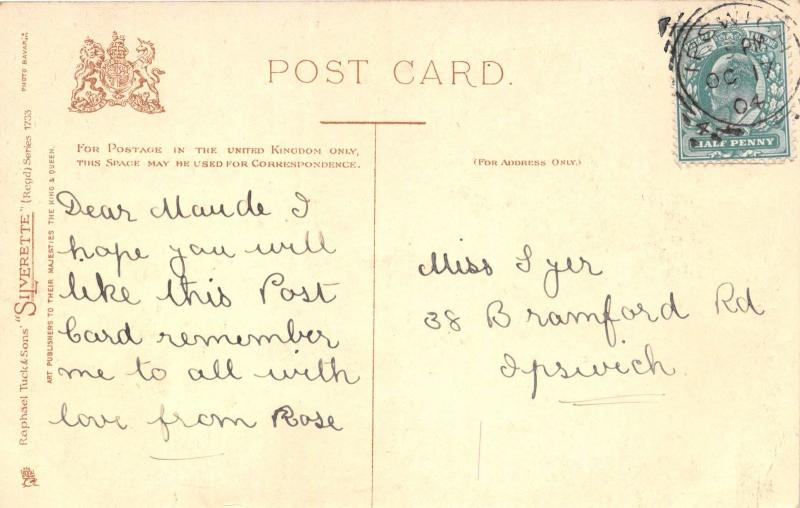 POST CARD.
FOR POSTAGE IN THE UNITED KINGDOM ONLY,
THIS SPACE MAY BE USED FOR CORRESPONDENCE.
(FOR ADDRESS ONLY.)
Dear Maude I
hope you will
like this Post
Card remember
me to all with
love from Rose
Miss Syer
38 Bramford Rd
Ipswich
IPSWICH
PM
OC
04
HALF PENNY
PHOTO BAVARIA
Raphael Tuck & Sons' "SILVERETTE" (Regd) Series 1733
ART PUBLISHERS TO THEIR MAJESTIES THE KING & QUEEN.